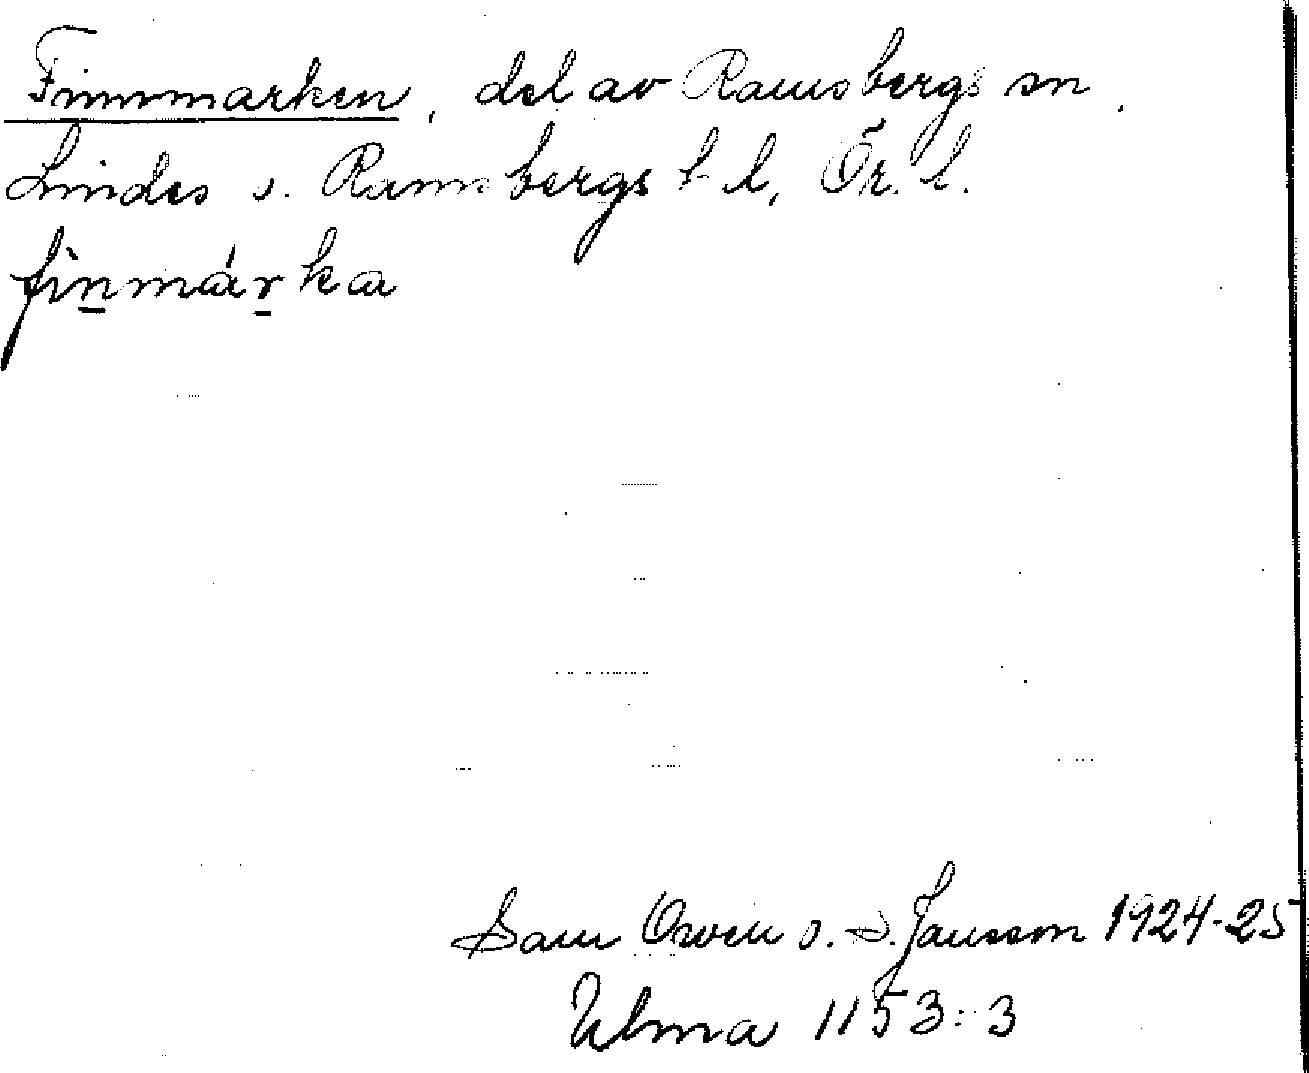 Finnmarken, del av Ramsbergs sn,
Lindes o. Ramsbergs bl, Ör. l.
fìnmárka
Sam Owen o. S. Jansson 1924-25
Ulma 1153:3